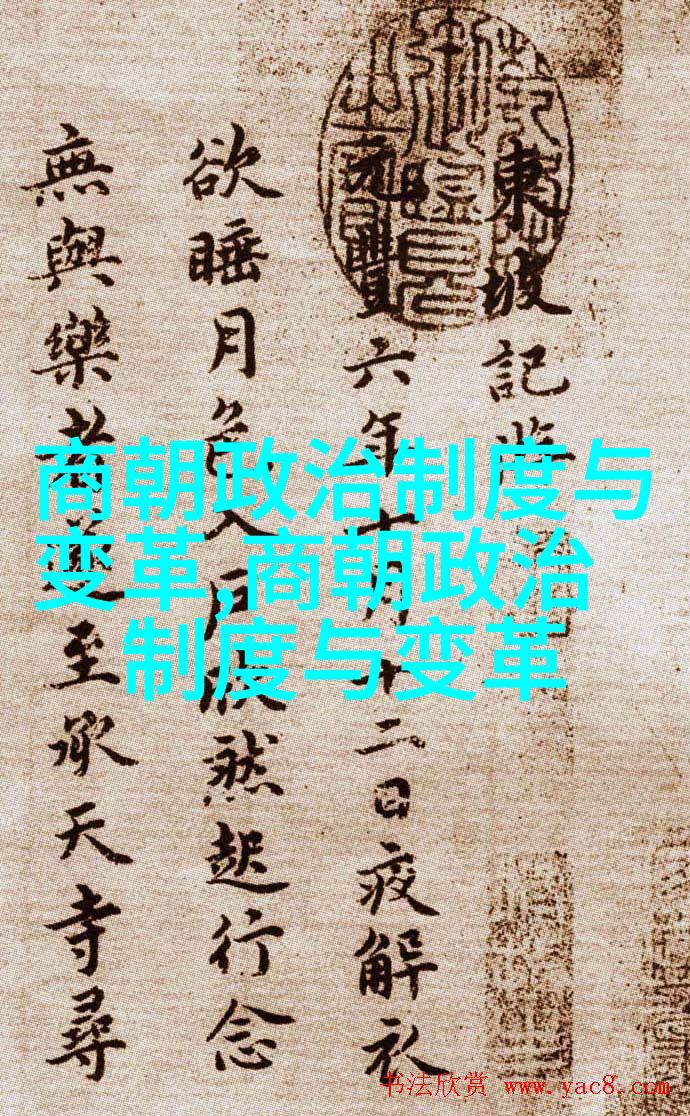 商朝政治制度与
变革,商朝政治
制度与变革
東坡記
元豐六年十月十二日夜解衣
欲睡月色入戶欣然起行念
無與樂者遂至承天寺尋
书法欣赏 www.yac8.com